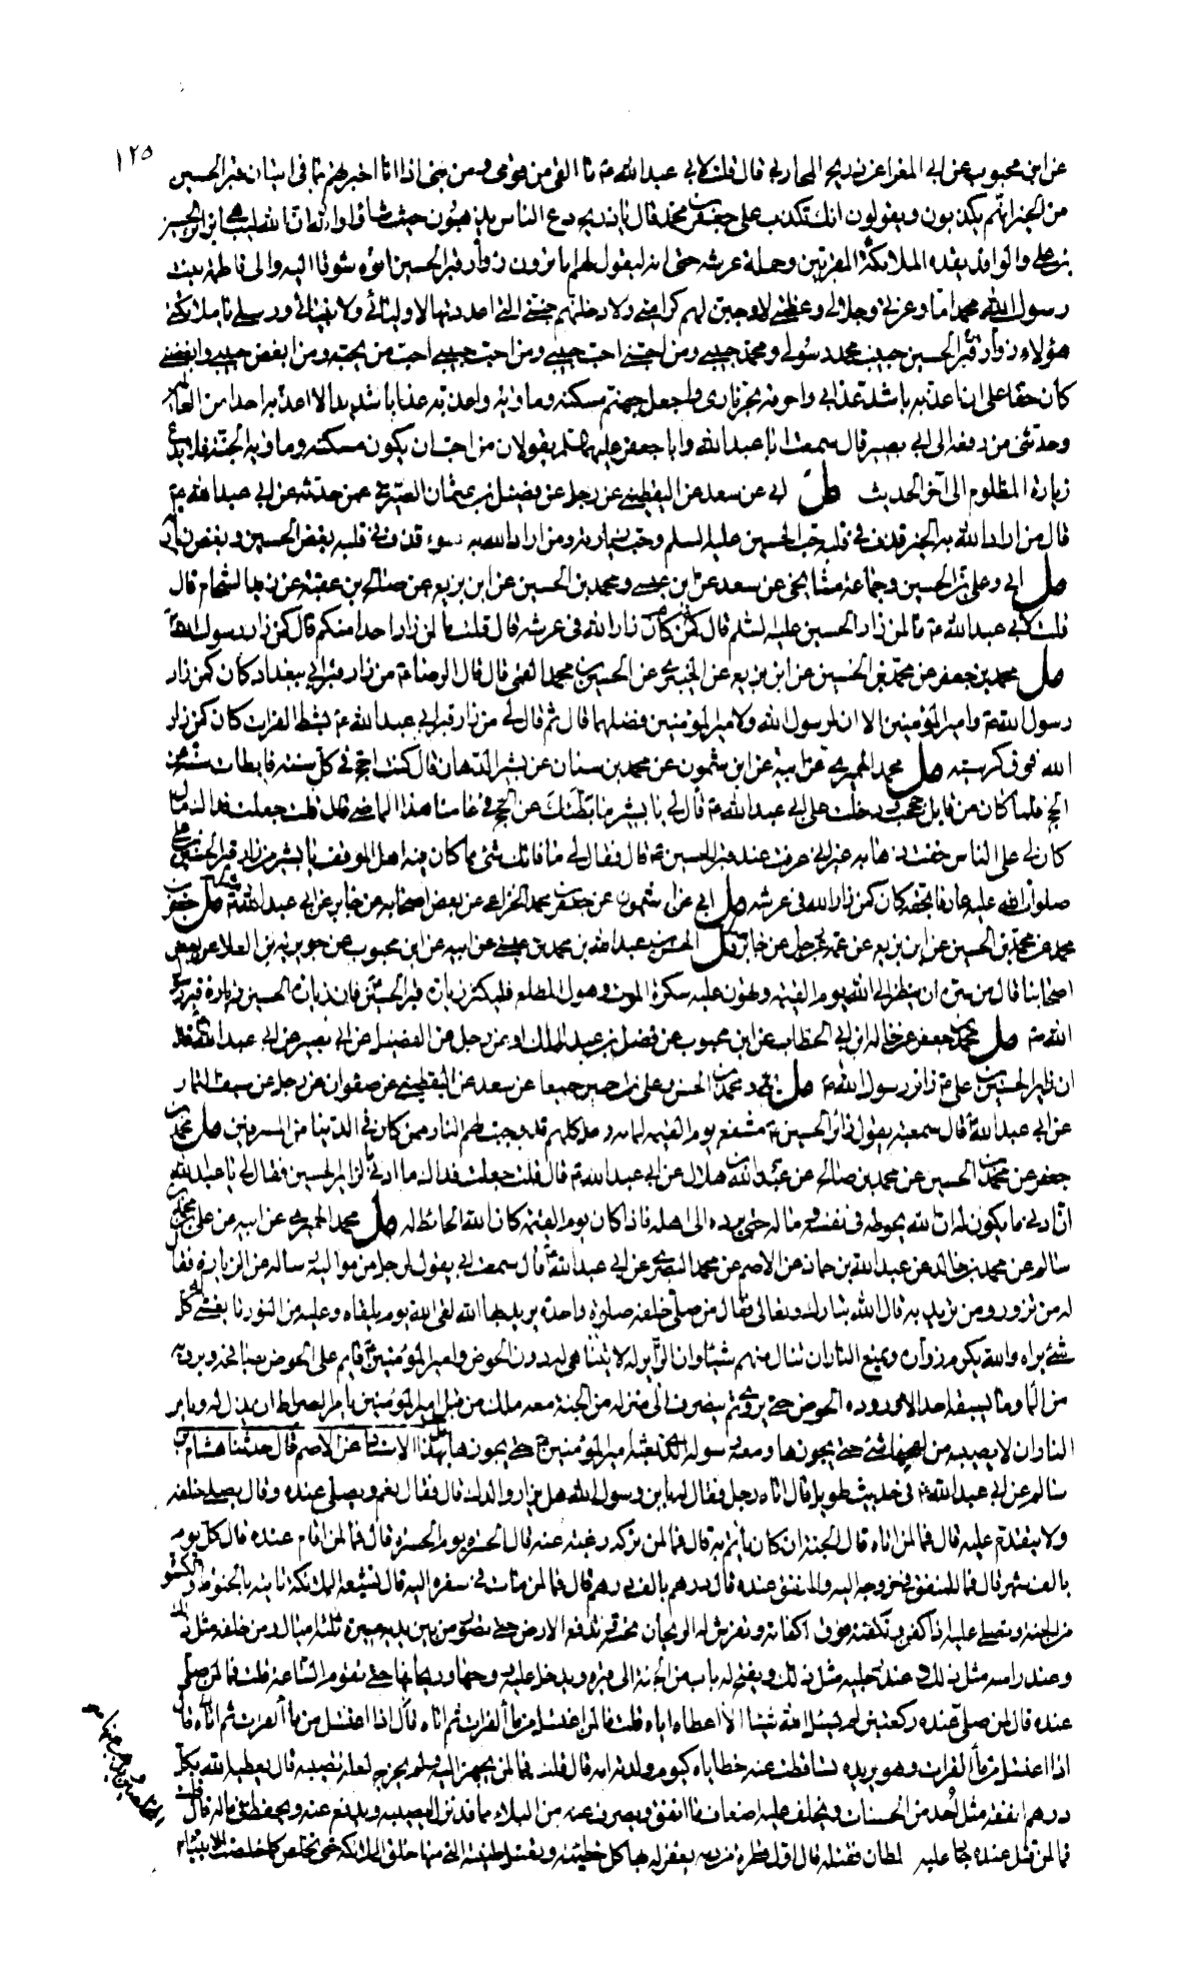 ١٢٥
عن ابن محبوب عن ابي المغرا عن ذريح المحاربي قال قلت لابي عبد الله ع ما القى من قومي ومن بني اذا انا اخبرتهم بما في اتيان قبر الحسين
من الخير انهم يكذبون ويقولون انك تكذب على جعفر بن محمد قال يا ذريح دع الناس يذهبون حيث شاؤا والله ان الله ليباهي بزائر الحسين
بن علي والوافد يفده الملائكة المقربين وحملة عرشه حتى انه ليقول لهم اما ترون زوار قبر الحسين اتوه شوقا اليه والى فاطمة بنت
رسول الله محمد اما وعزتي وجلالي وعظمتي لاوجبن لهم كرامتي ولادخلنهم جنتي التي اعددتها لاوليائي ولانبيائي ورسلي يا ملائكتي
هؤلاء زوار قبر الحسين حبيب محمد رسولي ومحمد حبيبي ومن احبني احب حبيبي ومن احب حبيبي احب من يحبه ومن ابغض حبيبي وابغضني
كان حقا علي ان اعذبه باشد عذابي واحرقه بحر ناري واجعل جهنم مسكنه وماواه واعذبه عذابا شديدا لا اعذبه احدا من العالمين
وحدثني من رفعه الى ابي بصير قال سمعت ابا عبد الله وابا جعفر عليهما السلم يقولان من احب ان يكون مسكنه وماواه الجنة فلا يدع
زيارة المظلوم الى آخر الحديث مل ابي عن سعد عن اليقطيني عن رجل عن فضيل بن عثمان الصيرفي عمن حدثه عن ابي عبد الله ع
قال من اراد الله به الخير قذف في قلبه حب الحسين عليه السلم وحب زيارته ومن اراد الله به سوء قذف في قلبه بغض الحسين وبغض زيارته
مل ابي وعلي بن الحسين وجماعة مشايخي عن سعد عن ابن عيسى ومحمد بن الحسين عن ابن بزيع عن صالح بن عقبة عن زيد الشحام قال
قلت لابي عبد الله ع ما لمن زار الحسين عليه السلم قال كمن زار الله في عرشه قال قلت ما لمن زار احدا منكم قال كمن زار رسول الله ص
مل محمد بن جعفر عن محمد بن الحسين عن ابن بزيع عن الخيبري عن الحسين بن محمد القمي قال قال الرضا ع من زار قبر ابي ببغداد كان كمن زار
رسول الله ص وامير المؤمنين الا ان لرسول الله ولامير المؤمنين فضلهما قال ثم قال لي من زار قبر ابي عبد الله ع بشط الفرات كان كمن زار
الله فوق كرسيه مل محمد الحميري عن ابيه عن ابن شمون عن محمد بن سنان عن بشير الدهان قال كنت احج في كل سنة فابطات سنة عن
الحج فلما كان من قابل حججت ودخلت على ابي عبد الله ع قال لي يا بشير ما ابطأك عن الحج في عامنا هذا الماضي قال قلت جعلت فداك مال
كان لي على الناس خفت ذهابه غير اني عرفت عند قبر الحسين ع قال فقال لي ما فاتك شئ مما كان فيه اهل الموقف يا بشير من زار قبر الحسين بن علي
صلوات الله عليه عارفا بحقه كان كمن زار الله في عرشه مل ابي عن ابن شمون عن جعفر بن محمد الخزاعي عن بعض اصحابه عن جابر عن ابي عبد الله ع مثله مل جعفر بن
محمد عن محمد بن الحسين عن ابن بزيع عن عمه عن رجل عن جابر مثله مل الحسن بن عبد الله بن محمد بن عيسى عن ابيه عن ابن محبوب عن جويرية بن العلا عن بعض
اصحابنا قال من سره ان ينظر الى الله يوم القيمة وتهون عليه سكرة الموت وهول المطلع فليكثر زيارة قبر الحسين فان زيارة الحسين زيارة قبر رسول
الله ص مل محمد بن جعفر عن خاله ابن ابي الخطاب عن ابن محبوب عن فضل بن عبد الملك او عن رجل عن الفضيل عن ابي بصير عن ابي عبد الله ع قال
ان زاير الحسين بن علي ع زائر رسول الله ص مل ابي ومحمد بن الحسن وعلي بن الحسين جميعا عن سعد عن اليقطيني عن صفوان عن رجل عن سيف التمار
عن ابي عبد الله ع قال سمعته يقول زائر الحسين ع مشفع يوم القيمة لمائة رجل كلهم قد وجبت لهم النار ممن كان في الدنيا من المسرفين مل محمد بن
جعفر عن محمد بن الحسين عن محمد بن صالح عن عبد الله بن هلال عن ابي عبد الله ع قال قلت جعلت فداك ما ادنى ما لزاير الحسين فقال لي يا عبد الله
ان ادنى ما يكون له ان الله يحوطه في نفسه وماله حتى يرده الى اهله فاذا كان يوم القيمة كان الله الحافظ له مل محمد الحميري عن ابيه عن علي بن محمد بن
سالم عن محمد بن خالد عن عبد الله بن حماد عن الاصم عن محمد البصري عن ابي عبد الله ع قال سمعت ابي يقول لرجل من مواليه ساله عن الزيارة فقال
له من تزور ومن تريد به قال الله تبارك وتعالى فقال من صلى خلفه صلوة واحدة يريد بها الله لقى الله يوم يلقاه وعليه من النور ما يغشى له كل
شئ يراه والله يكرم زواره ويمنع النار ان تنال منهم شيئا وان الزاير له لا يتناهى له دون الحوض وامير المؤمنين ع قايم على الحوض يصافحه ويرويه
من الماء وما يسبقه احد الى وروده الحوض حتى يروى ثم ينصرف الى منزله من الجنة معه ملك من قبل امير المؤمنين يأمر الصراط ان يذل له ويامر
النار ان لا يصيبه من لفحها شئ حتى يجوزها ومعه رسوله الذي بعثه امير المؤمنين ع مل بهذا الاسناد عن الاصم قال حدثنا هشام بن
سالم عن ابي عبد الله ع في حديث طويل قال اتاه رجل فقال له يا ابن رسول الله هل يزار والدك قال فقال نعم ويصلى عنده وقال يصلى خلفه
ولا يتقدم عليه قال فما لمن اتاه قال الجنة ان كان يأتم به قال فما لمن تركه رغبة عنه قال الحسرة يوم الحسرة قال فما لمن اقام عنده قال كل يوم
بالف شهر قال فما للمنفق في خروجه اليه والمنفق عنده قال درهم بالف درهم قال فما لمن مات في سفره اليه قال تشيعه الملائكة تاتيه بالحنوط والكسوة
من الجنة وتصلي عليه اذا كفن وتكفنه فوق اكفانه وتفرش له الريحان تحته وتدفع الارض حتى تصور من بين يديه مسيرة ثلثة اميال ومن خلفه مثل ذلك
وعند راسه مثل ذلك وعند رجليه مثل ذلك ويفتح له باب من الجنة الى قبره ويدخل عليه روحها وريحانها حتى تقوم الساعة قلت فما لمن صلى
عنده قال من صلى عنده ركعتين لم يسئل الله شيئا الا اعطاه اياه قلت فما لمن اغتسل من ماء الفرات ثم اتاه قال اذا اغتسل من ماء الفرات ثم اتاه قال
اذا اغتسل من ماء الفرات وهو يريده تساقطت عنه خطاياه كيوم ولدته امه قال قلت فما لمن يجهز اليه ولم يخرج لعلة تصيبه قال يعطيه الله بكل
درهم انفقه مثل احد من الحسنات ويخلف عليه اضعاف ما انفق ويصرف عنه من البلاء مما قد نزل ليصيبه ويدفع عنه ويحفظ في ماله قال قلت
فما لمن قتل عنده جار عليه سلطان فقتله قال اول قطرة من دمه يغفر له بها كل خطيئة وتغسل طينته التي منها خلق الملائكة حتى تخلص كما خلصت الانبياء